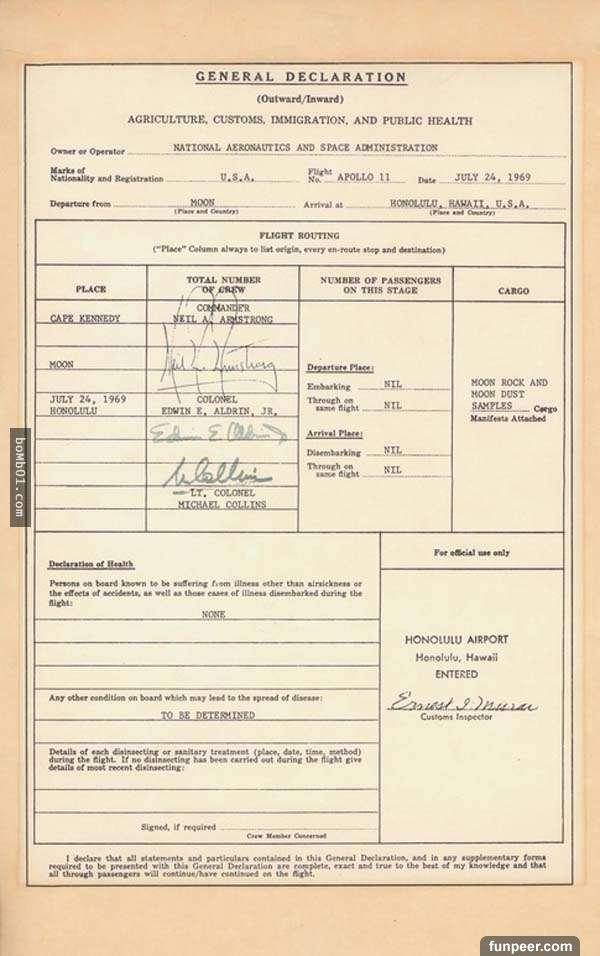 GENERAL DECLARATION
(Outward/Inward)
AGRICULTURE, CUSTOMS, IMMIGRATION, AND PUBLIC HEALTH
Owner or Operator NATIONAL AERONAUTICS AND SPACE ADMINISTRATION
Marks of
Nationality and Registration U.S.A. Flight No. APOLLO 11 Date JULY 24, 1969
Departure from MOON Arrival at HONOLULU, HAWAII, U.S.A.
(Place and Country) (Place and Country)
FLIGHT ROUTING
("Place" Column always to list origin, every en-route stop and destination)
PLACE
CAPE KENNEDY
MOON
JULY 24, 1969
HONOLULU
TOTAL NUMBER
OF CREW
COMMANDER
NEIL A. ARMSTRONG
Neil A. Armstrong
COLONEL
EDWIN E. ALDRIN, JR.
Edwin E Aldrin Jr
M Collins
LT. COLONEL
MICHAEL COLLINS
NUMBER OF PASSENGERS
ON THIS STAGE
Departure Place:
Embarking NIL
Through on
same flight NIL
Arrival Place:
Disembarking NIL
Through on
same flight NIL
CARGO
MOON ROCK AND
MOON DUST
SAMPLES Cargo
Manifests Attached
Declaration of Health
Persons on board known to be suffering from illness other than airsickness or
the effects of accidents, as well as those cases of illness disembarked during the
flight:
NONE
Any other condition on board which may lead to the spread of disease:
TO BE DETERMINED
Details of each disinsecting or sanitary treatment (place, date, time, method)
during the flight. If no disinsecting has been carried out during the flight give
details of most recent disinsecting:
Signed, if required
Crew Member Concerned
For official use only
HONOLULU AIRPORT
Honolulu, Hawaii
ENTERED
Ernest I. Murai
Customs Inspector
I declare that all statements and particulars contained in this General Declaration, and in any supplementary forms
required to be presented with this General Declaration are complete, exact and true to the best of my knowledge and that
all through passengers will continue/have continued on the flight.
boMb01.com
funpeer.com